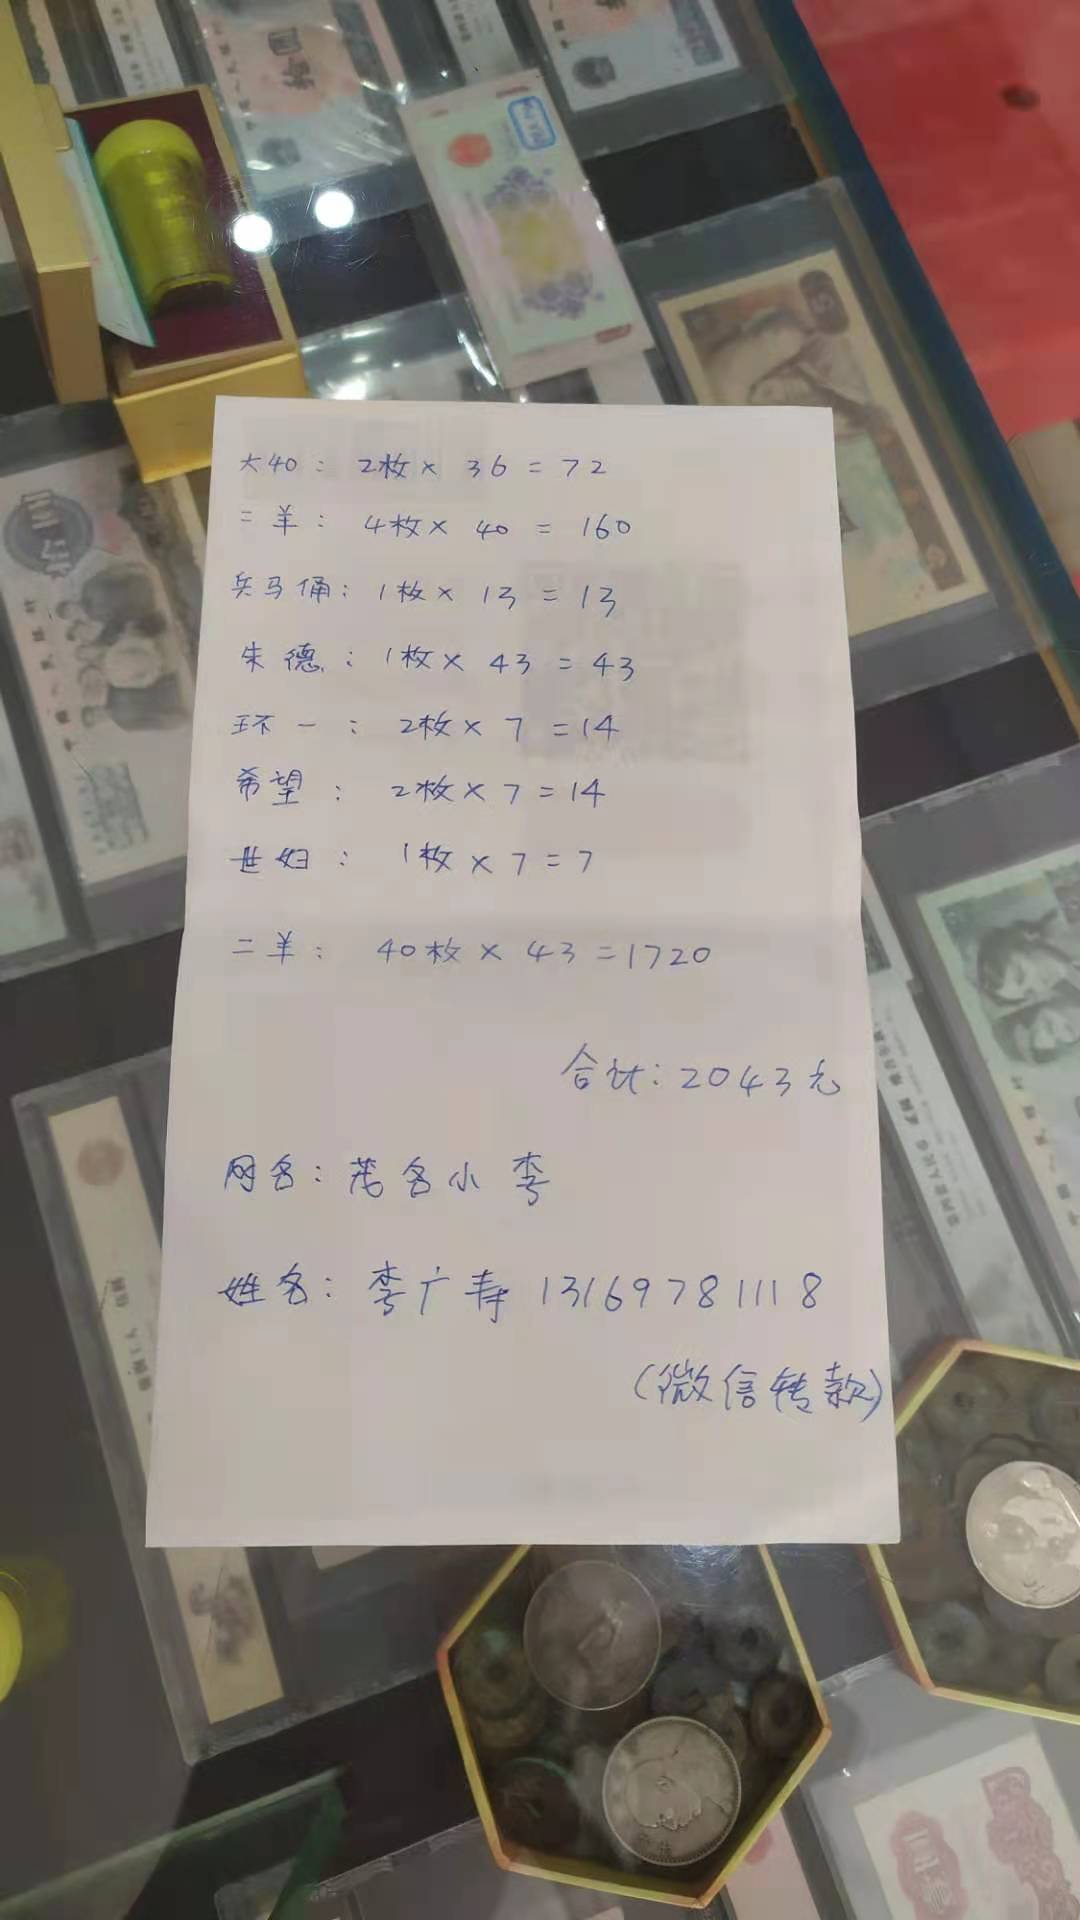 大40： 2枚 × 36 = 72
二羊： 4枚 × 40 = 160
兵马俑： 1枚 × 13 = 13
朱德： 1枚 × 43 = 43
环一： 2枚 × 7 = 14
希望： 2枚 × 7 = 14
世妇： 1枚 × 7 = 7
二羊： 40枚 × 43 = 1720
合计：2043元
网名：茂名小李
姓名：李广寿 13169781118
（微信转款）